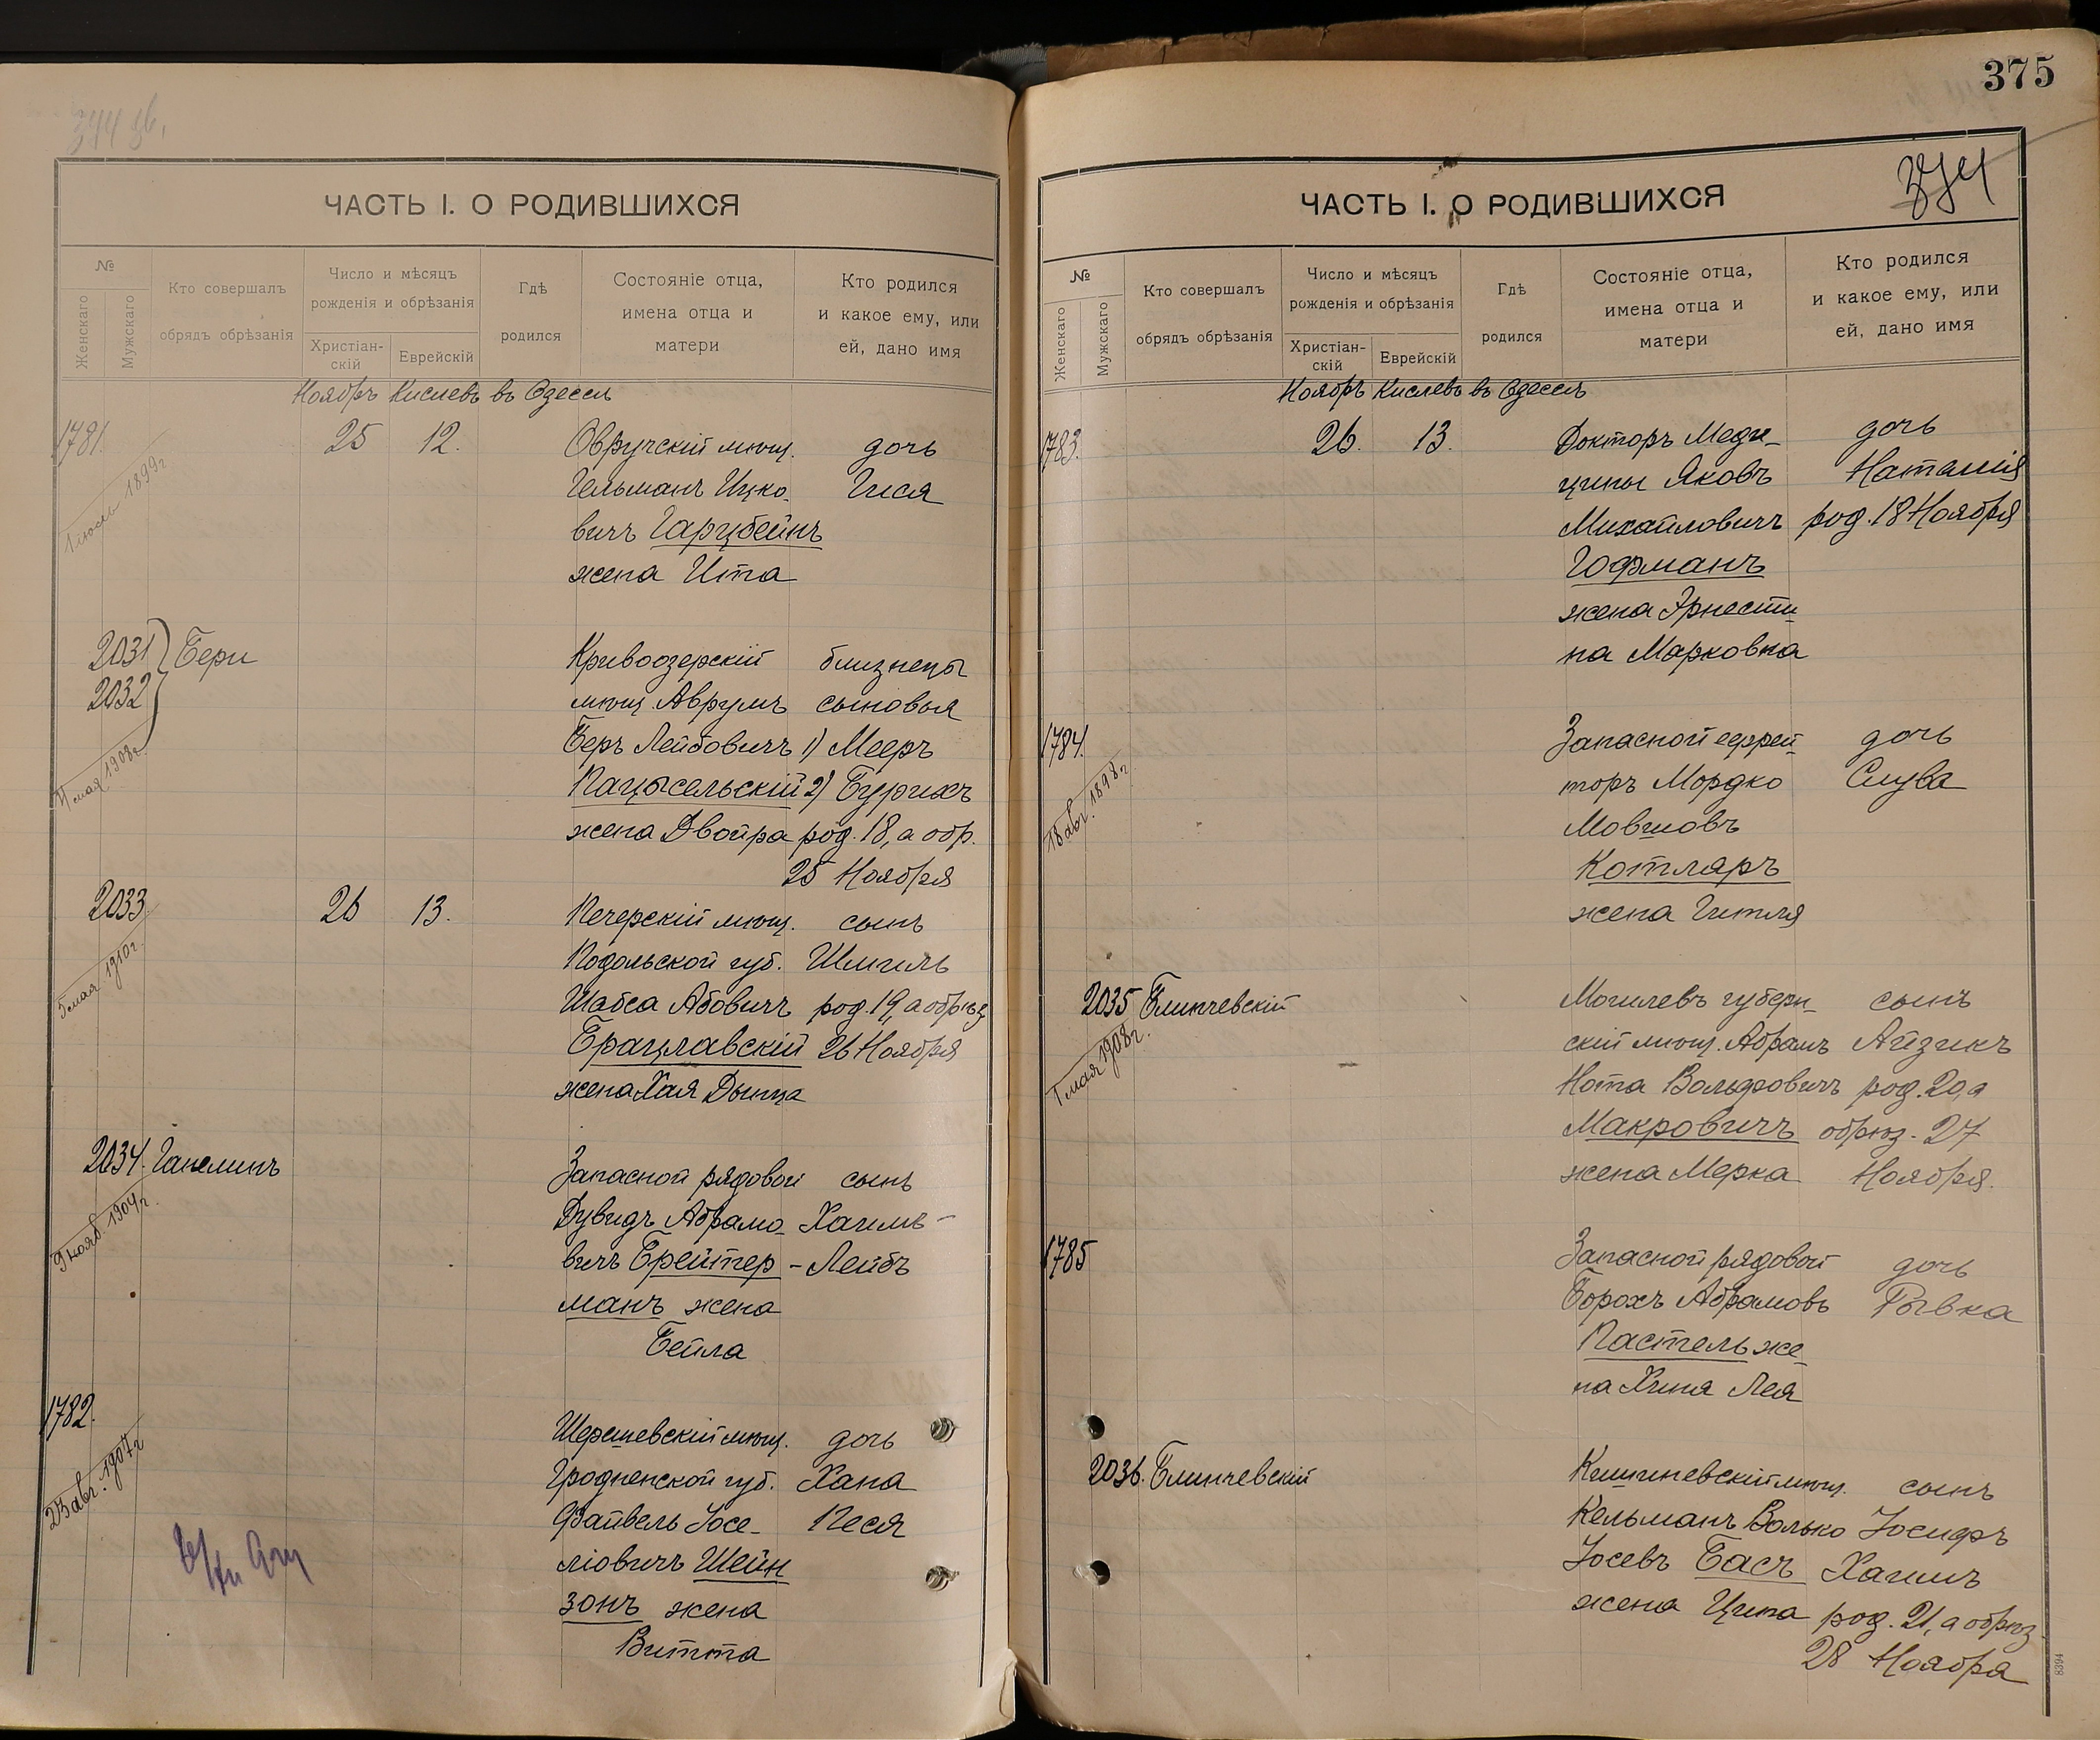 375
344 об.
ЧАСТЬ I. О РОДИВШИХСЯ
№
Женскаго
Мужскаго
Кто совершалъ
обрядъ обрѣзанія
Число и мѣсяцъ
рожденія и обрѣзанія
Христіан-
скій
Еврейскій
Гдѣ
родился
Состояніе отца,
имена отца и
матери
Кто родился
и какое ему, или
ей, дано имя
Ноябрь Кислевъ въ Одессѣ
1781. 25 12. Овручскій мѣщ. дочь
Гельманъ Ицко- Гися
вичъ Гарцбейнъ
жена Ита
1899 г
2031 Бери Кривоозерскій близнецы
2032 мѣщ Аврумъ сыновья
Беръ Лейбовичъ 1) Мееръ
Пацысельскій 2) Бурихъ
жена Двойра род. 18, а обр.
25 Ноября
мая 1908 г.
2033 26 13. Печерскій мѣщ. сынъ
Подольской губ. Шмиль
Шабса Абовичъ род. 19, а обрѣз
Брацлавскій 26 Ноября
жена Хая Дынца
5 мая 1910 г.
2034. Ганелинъ Запасной рядовой сынъ
Дувидъ Абрамо- Хаимъ-
вичъ Брейтер- Лейбъ
манъ жена
Бейла
9 нояб. 1904 г.
1782. Шерешевскій мѣщ. дочь
Гродненской губ. Хана
Файвель Іосе- Песя
ліовичъ Шейн
зонъ жена
Витта
23 авг. 1907 г
ЧАСТЬ I. О РОДИВШИХСЯ
374
№
Женскаго
Мужскаго
Кто совершалъ
обрядъ обрѣзанія
Число и мѣсяцъ
рожденія и обрѣзанія
Христіан-
скій
Еврейскій
Гдѣ
родился
Состояніе отца,
имена отца и
матери
Кто родился
и какое ему, или
ей, дано имя
Ноябрь Кислевъ въ Одессѣ
1783. 26. 13. Докторъ Меди- дочь
цины Яковъ Наталія
Михайловичъ род. 18 Ноября
Гофманъ
жена Эрнести
на Марковна
1784. Запасной ефрей- дочь
торъ Мордко Слува
Мовшовъ
Котляръ
жена Гитля
18 авг. 1898 г
2035 Блинчевскій Могилевъ губерн- сынъ
скій мѣщ. Абрамъ Айзикъ
Нота Вольфовичъ род. 20, а
Макровичъ обрѣз. 27
жена Мерка Ноября.
1 мая 1908 г.
1785 Запасной рядовой дочь
Борохъ Абрамовъ Рывка
Пастель же-
на Хиня Лея
2036. Блинчевскій Кишиневскій мѣщ. сынъ
Кельманъ Волько Іосифъ
Іосевъ Басъ Хаимъ
жена Ципа род. 21, а обрѣз
28 Ноября
8394